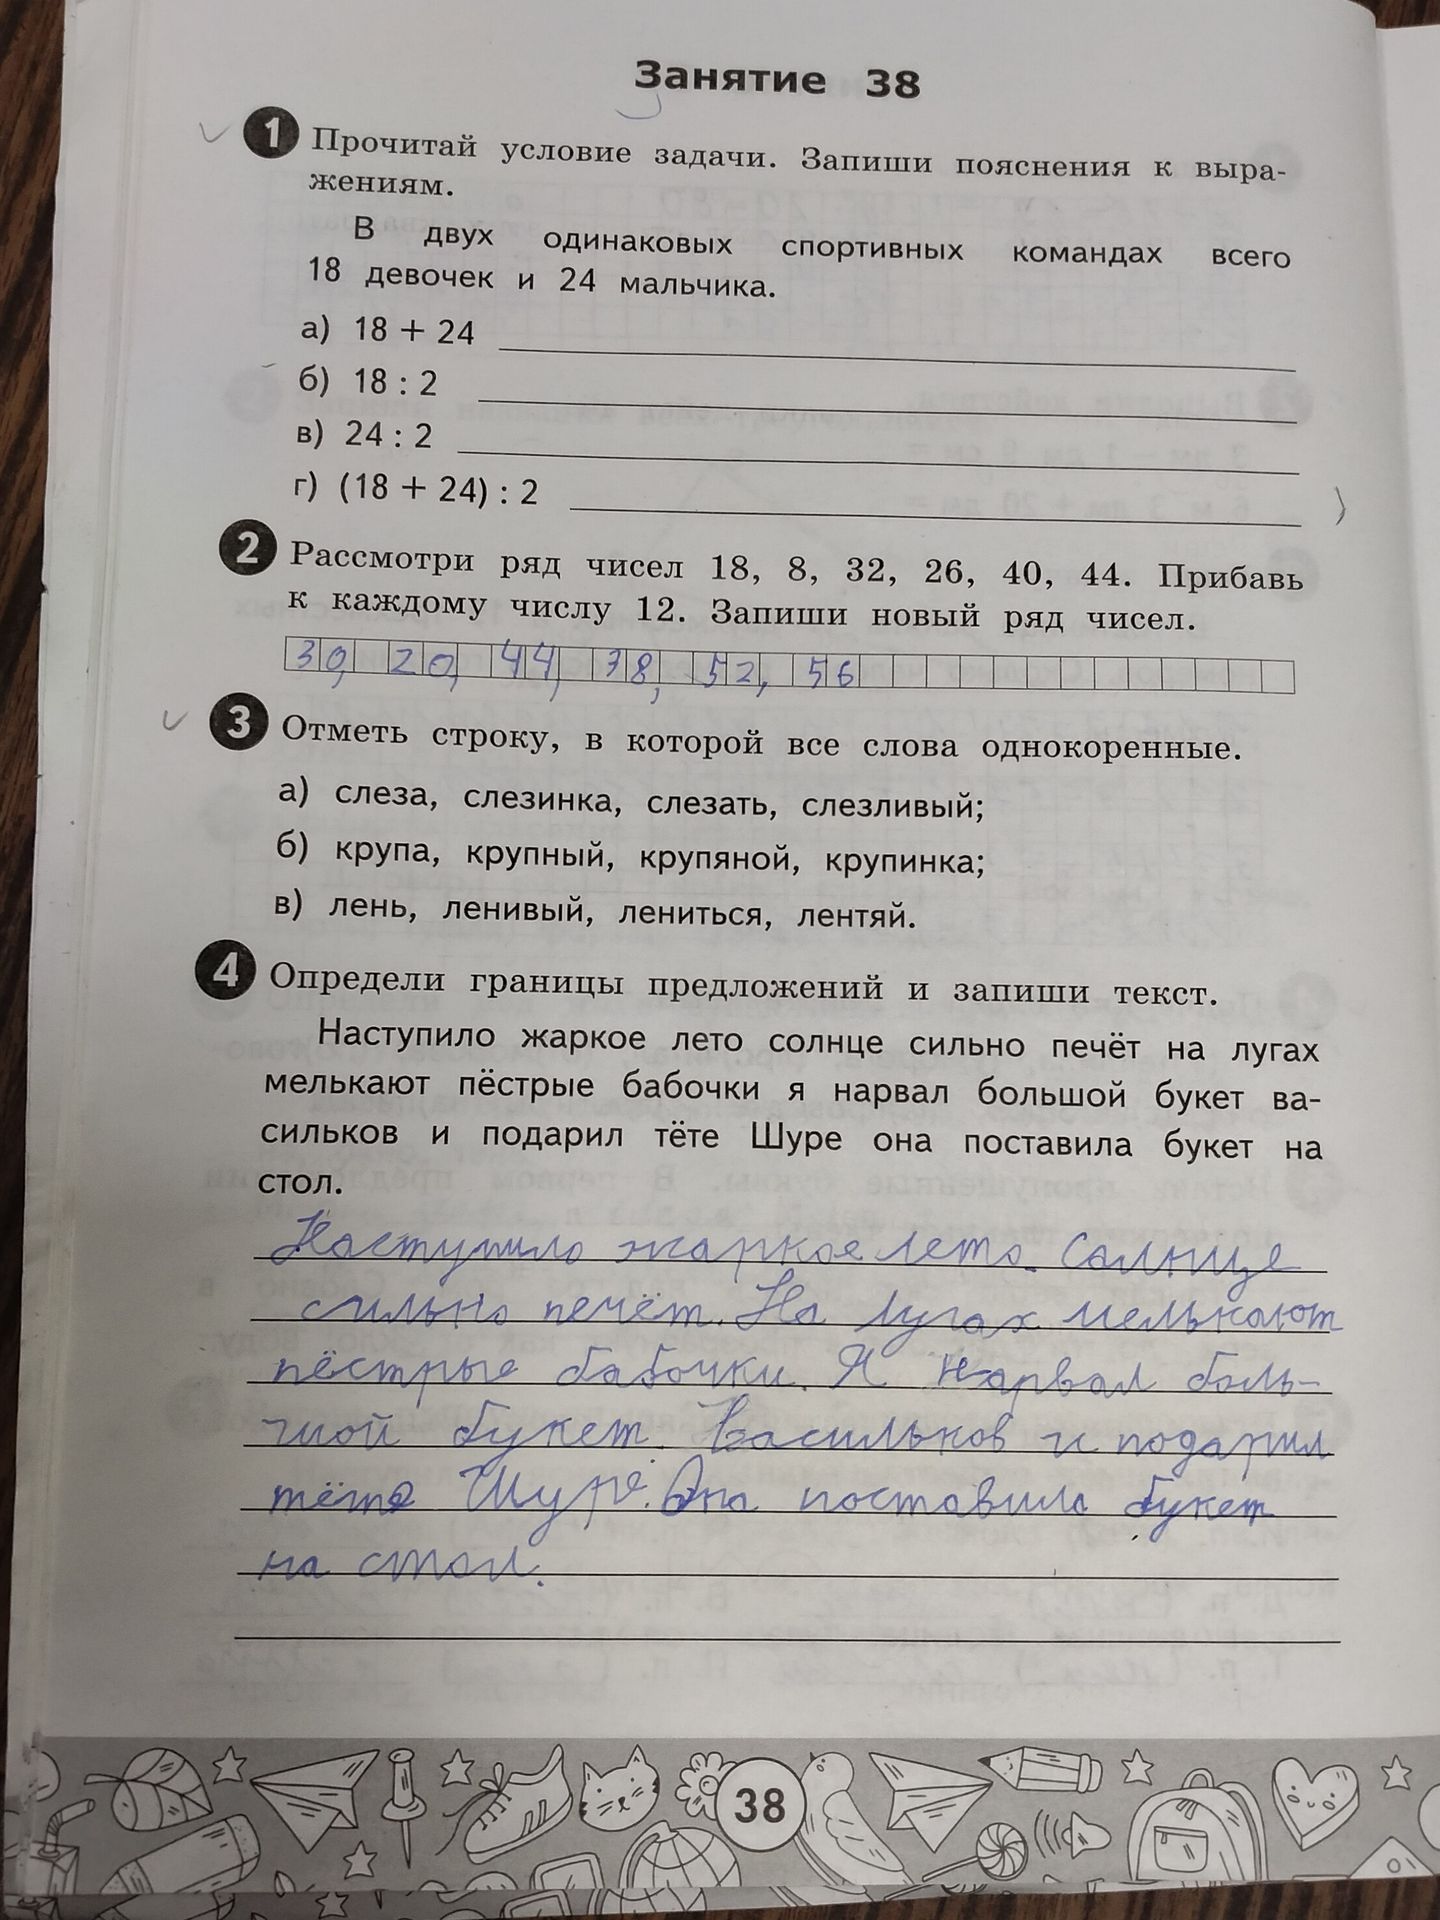 Занятие 38
1 Прочитай условие задачи. Запиши пояснения к выра-
жениям.
В двух одинаковых спортивных командах всего
18 девочек и 24 мальчика.
а) 18 + 24
б) 18 : 2
в) 24 : 2
г) (18 + 24) : 2
2 Рассмотри ряд чисел 18, 8, 32, 26, 40, 44. Прибавь
к каждому числу 12. Запиши новый ряд чисел.
30, 20, 44, 38, 52, 56
3 Отметь строку, в которой все слова однокоренные.
а) слеза, слезинка, слезать, слезливый;
б) крупа, крупный, крупяной, крупинка;
в) лень, ленивый, лениться, лентяй.
4 Определи границы предложений и запиши текст.
Наступило жаркое лето солнце сильно печёт на лугах
мелькают пёстрые бабочки я нарвал большой букет ва-
сильков и подарил тёте Шуре она поставила букет на
стол.
Наступило жаркое лето. Салнце
сильно печёт. На лугах мелькают
пёстрые бабочки. Я нарвал боль-
шой букет. Васильков и подарил
тёте Шуре. Она поставила букет
на стол.
38